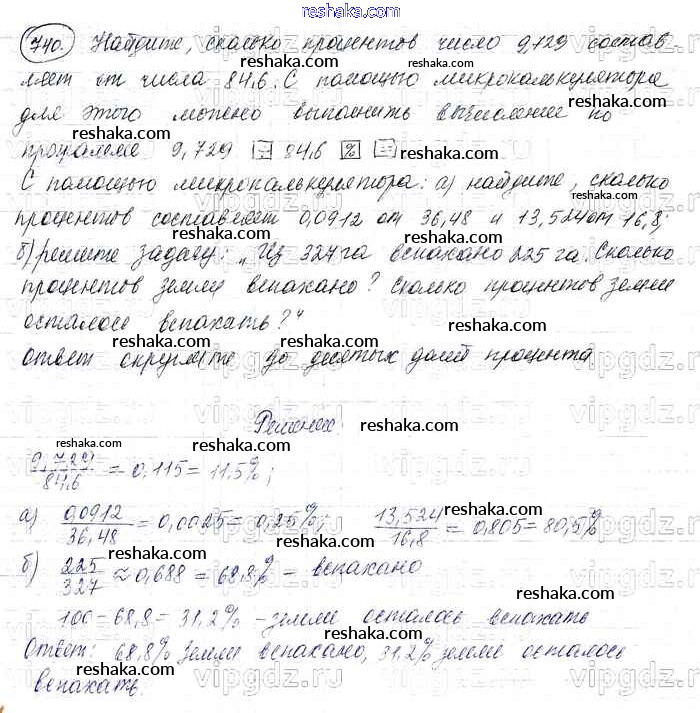 reshaka.com
740. Найдите, сколько процентов число 9,729 состав
ляет от числа 84,6. С помощью микрокалькулятора
для этого можно выполнить вычисление по
программе 9,729 ÷ 84,6 % =
С помощью микрокалькулятора: а) найдите, сколько
процентов составляет 0,0912 от 36,48 и 13,524 от 16,8;
б) решите задачу: „Из 327 га вспахано 225 га. Сколько
процентов земли вспахано? Сколько процентов земли
осталось вспахать?“
ответ округлите до десятых долей процента
Решение:
9,729/84,6 = 0,115 = 11,5%;
а) 0,0912/36,48 = 0,0025 = 0,25%; 13,524/16,8 = 0,805 = 80,5%
б) 225/327 ≈ 0,688 = 68,8% – вспахано
100 – 68,8 = 31,2% – земли осталось вспахать
Ответ: 68,8% земли вспахано, 31,2% земли осталось
вспахать.